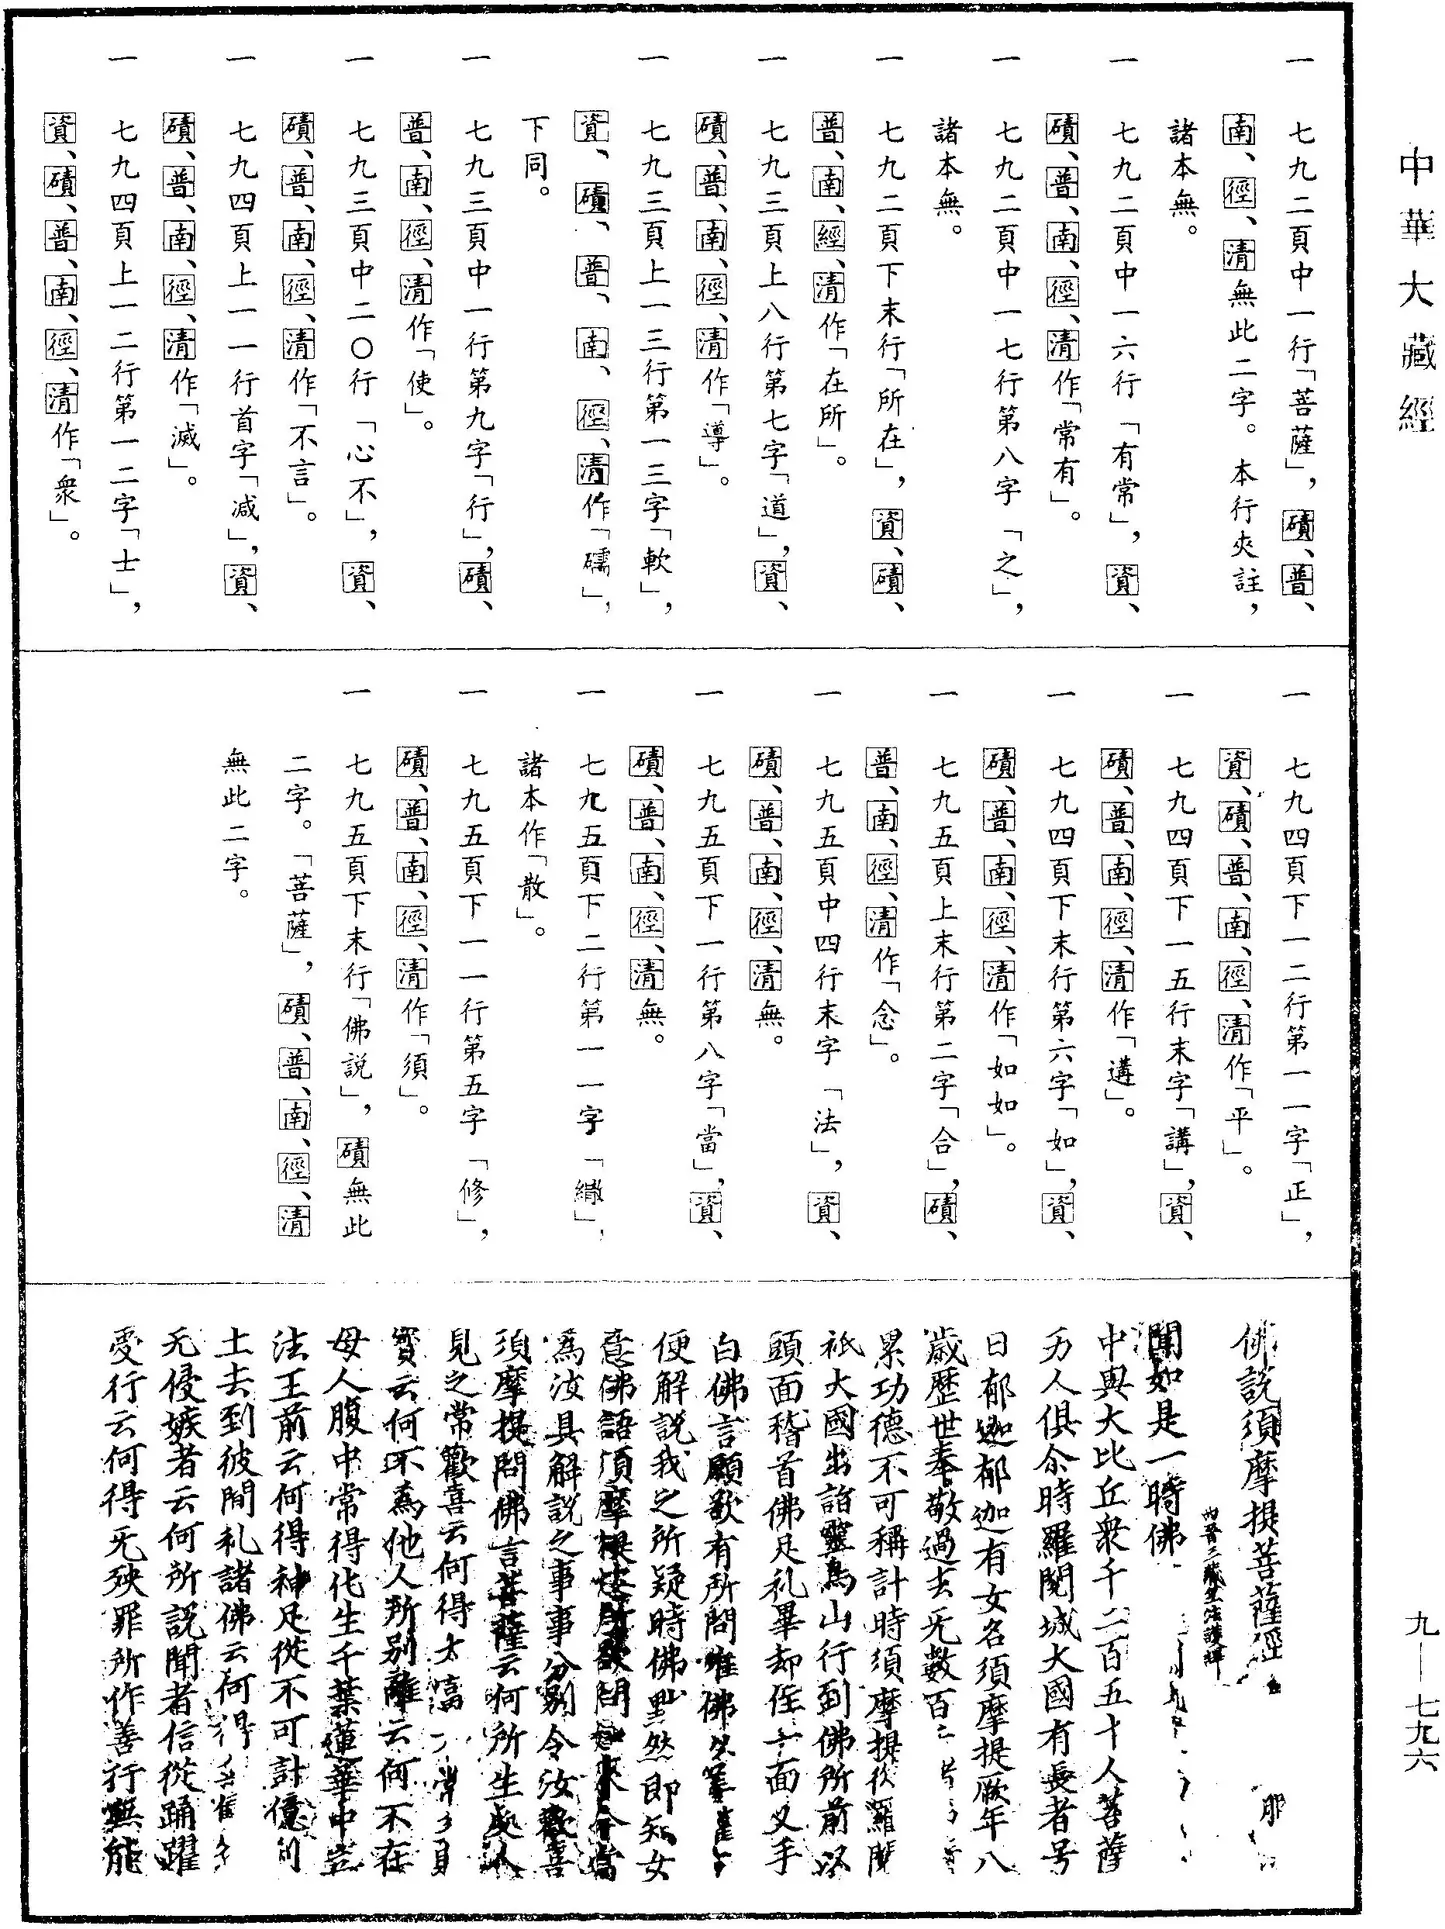 中華大藏經
一　七九二頁中一行「菩薩」，磧、普、
南、徑、清無此二字。本行夾註，
諸本無。
一　七九二頁中一六行「有常」，資、
磧、普、南、徑、清作「常有」。
一　七九二頁中一七行第八字「之」，
諸本無。
一　七九二頁下末行「所在」，資、磧、
普、南、經、清作「在所」。
一　七九三頁上八行第七字「道」，資、
磧、普、南、徑、清作「導」。
一　七九三頁上一三行第一三字「軟」，
資、磧、普、南、徑、清作「礝」，
下同。
一　七九三頁中一行第九字「行」，磧、
普、南、徑、清作「使」。
一　七九三頁中二〇行「心不」，資、
磧、普、南、徑、清作「不言」。
一　七九四頁上一一行首字「減」，資、
磧、普、南、徑、清作「滅」。
一　七九四頁上一二行第一二字「士」，
資、磧、普、南、徑、清作「衆」。
一　七九四頁下一二行第一一字「正」，
資、磧、普、南、徑、清作「平」。
一　七九四頁下一五行末字「講」，資、
磧、普、南、徑、清作「遘」。
一　七九四頁下末行第六字「如」，資、
磧、普、南、徑、清作「如如」。
一　七九五頁上末行第二字「合」，磧、
普、南、徑、清作「念」。
一　七九五頁中四行末字「法」，資、
磧、普、南、徑、清無。
一　七九五頁下一行第八字「當」，資、
磧、普、南、徑、清無。
一　七九五頁下二行第一一字「繖」，
諸本作「散」。
一　七九五頁下一一行第五字「修」，
磧、普、南、徑、清作「須」。
一　七九五頁下末行「佛說」，磧無此
二字。「菩薩」，磧、普、南、徑、清
無此二字。
佛說須摩提菩薩經
西晉三藏竺法護譯
聞如是一時佛
中與大比丘衆千二百五十人菩薩
万人俱尒時羅閱城大國有長者号
日郁迦郁迦有女名須摩提厥年八
歲歷世奉敬過去无數百
累功德不可稱計時須摩提從羅閱
祇大國出詣靈鳥山行到佛所前以
頭面稽首佛足礼畢却住一面叉手
白佛言願欲有所問唯佛
便解說我之所疑時佛默然即知女
意佛語須摩提恣所欲問如來今當
爲汝具解說之事事分別令汝歡喜
須摩提問佛言菩薩云何所生處人
見之常歡喜云何得大富 常
寶云何不爲他人所別離云何不在
母人腹中常得化生千葉蓮華中豈
法王前云何得神足從不可計億
土去到彼間礼諸佛云何得
无侵嫉者云何所說聞者信從踊躍
受行云何得无殃罪所作善行無能
九—七九六